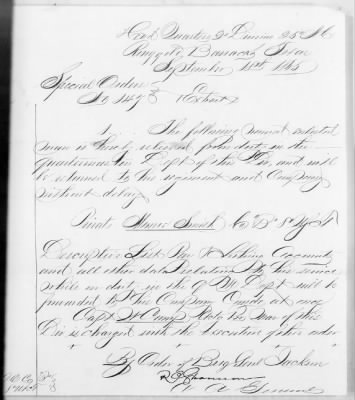 Head Quarters 2d Division 25th A C
Ringgold Barracks Texas
September 11th 1865
Special Orders
No 147 (Extract)
1 The following named enlisted
man is hereby relieved from duty in the
Quartermasters Dept of this Div, and will
be returned to his regiment and Company
without delay
Private Smith Co
Descriptive List Pay & Clothing Accounts
and all other data relating to his service
while on duty in the Q M Dept will be
forwarded to his Company Comdr at once
Capt A Q M of this
Div is charged with the Execution of this order
By Order of Brig Genl Jackson
A A General